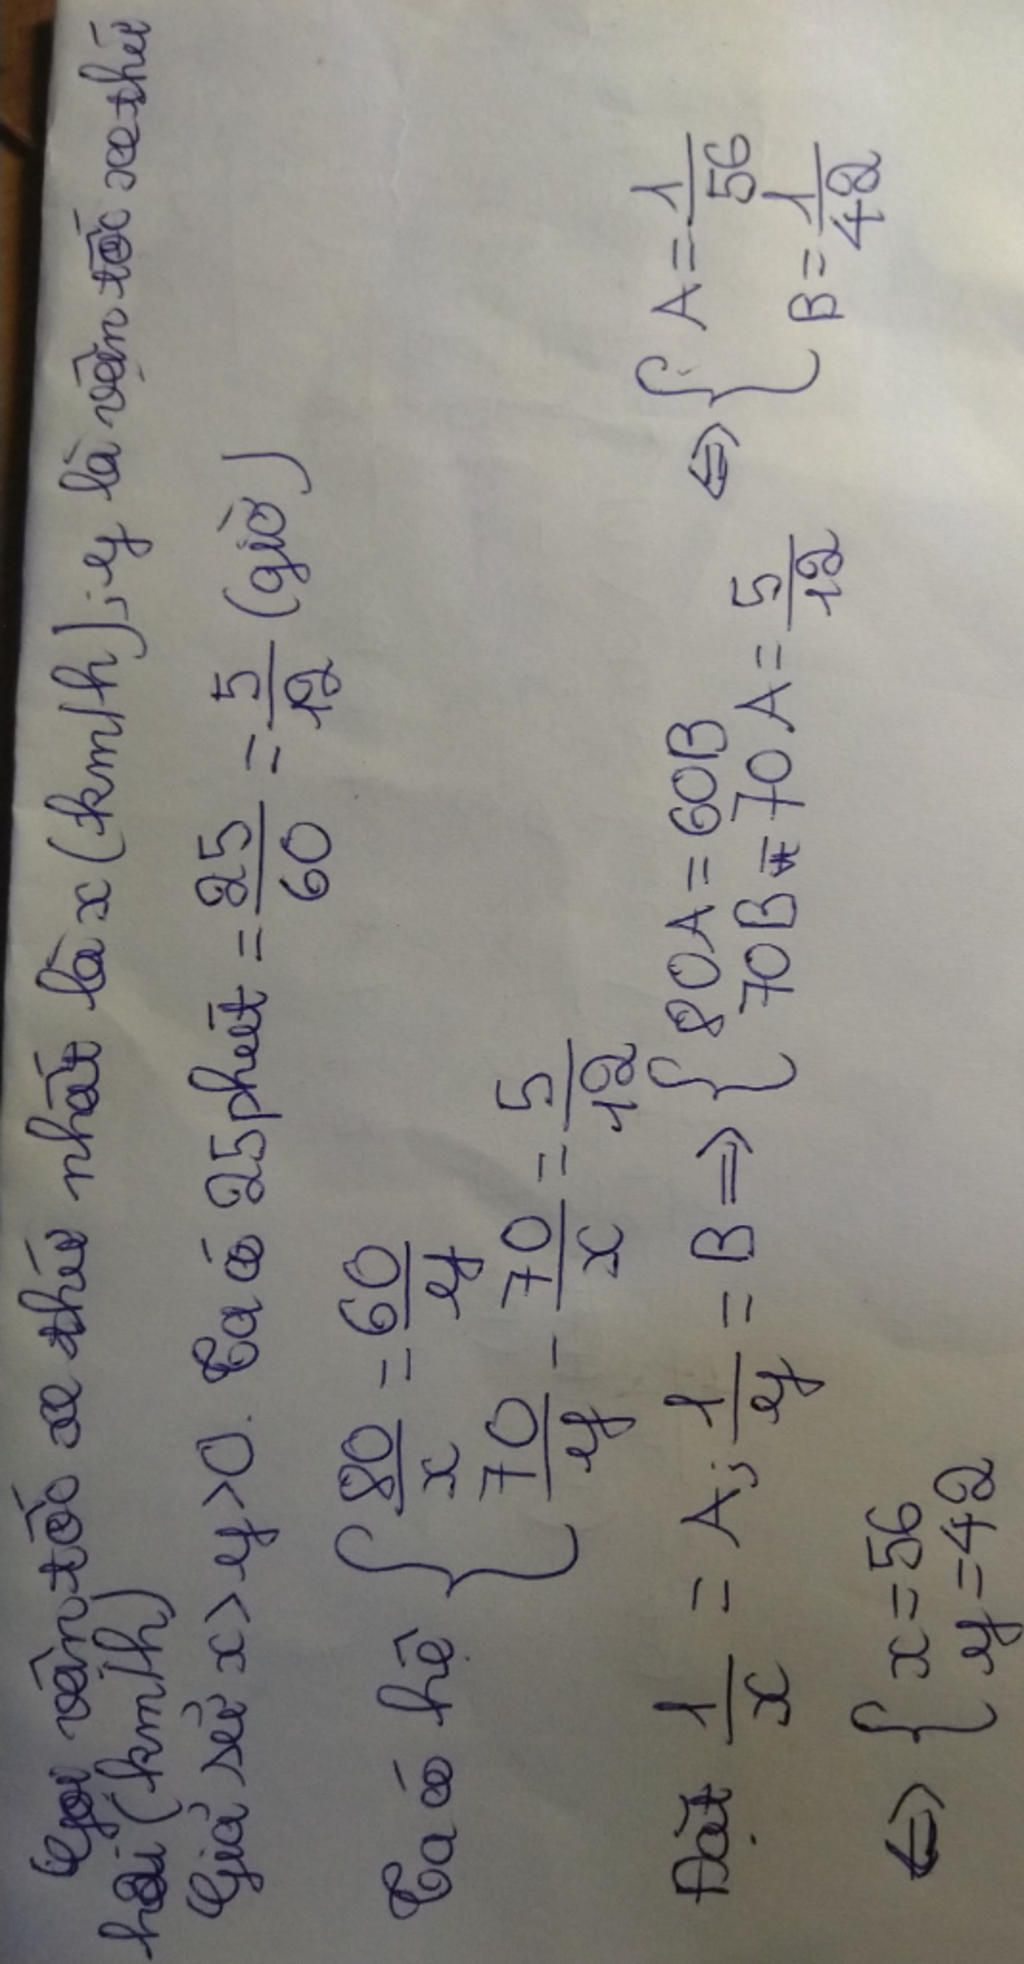 Gọi vận tốc xe thứ nhất là x (km/h); y là vận tốc xe thứ
hai (km/h)
Giả sử x > y > 0. Ta có 25 phút = 25/60 = 5/12 (giờ)
Ta có hệ { 80/x = 60/y
70/y - 70/x = 5/12
Đặt 1/x = A; 1/y = B => { 80A = 60B
70B - 70A = 5/12
<=> { A = 1/56
B = 1/42
<=> { x = 56
y = 42